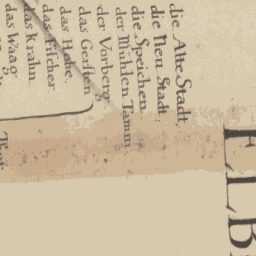 die Alte Stadt.
die Neu Stadt.
die Speichen.
der Mühlen Tamm.
der Vorberg.
das Gersten
das Hohe.
das Fischer
das Krahn.
das Waag.
Thor.
ELB